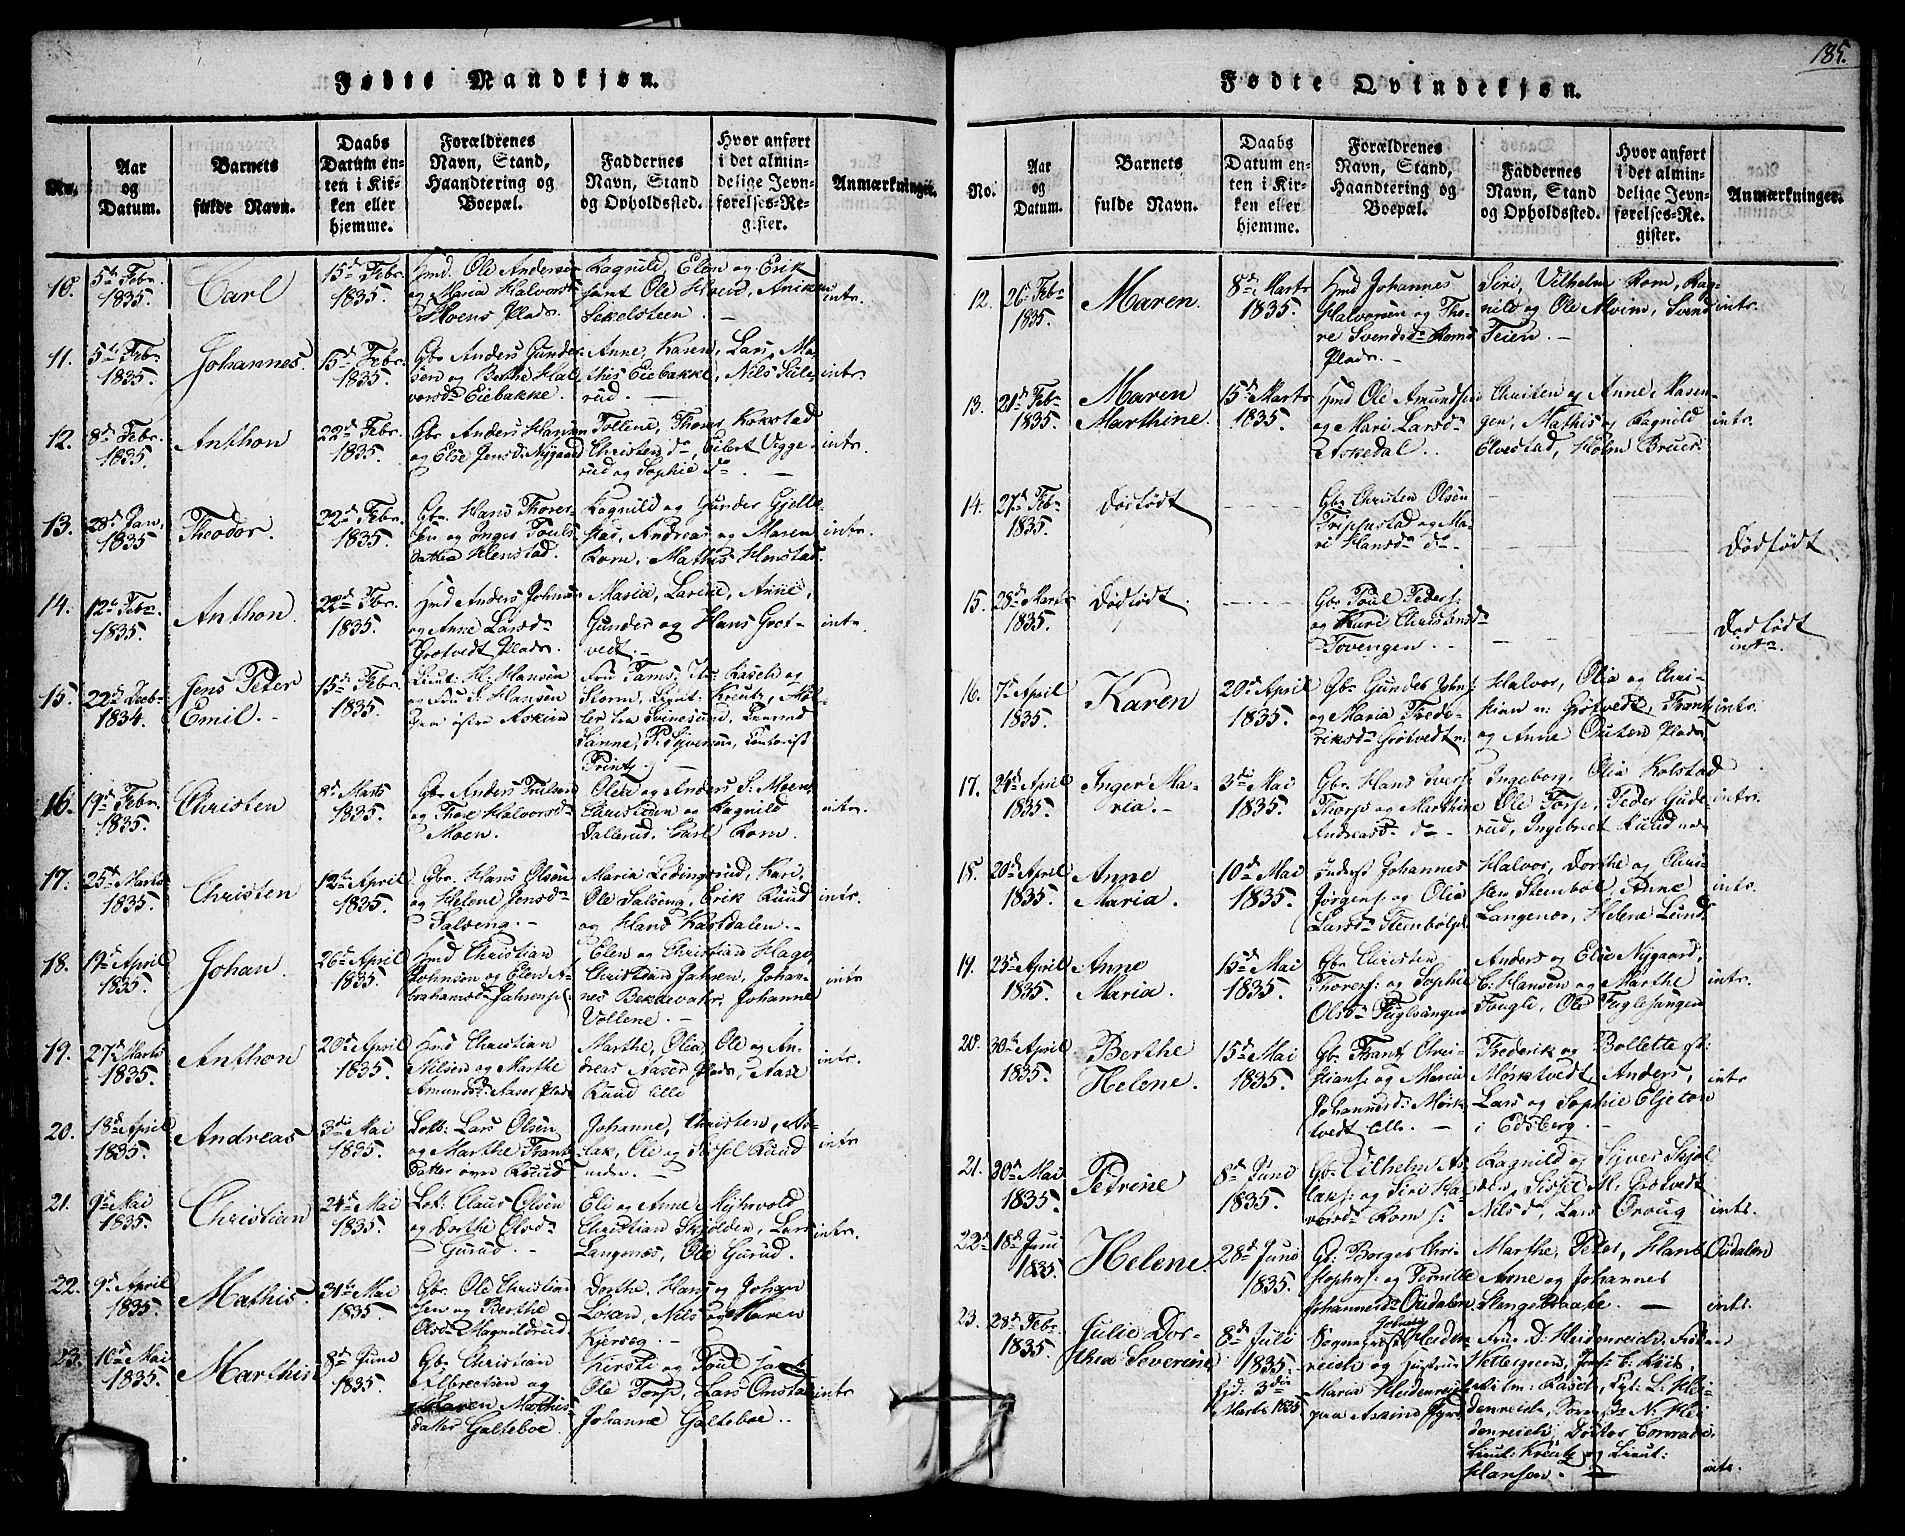 185.
Fødte Mandkjøn.
No.
Aar og Datum.
Barnets fulde Navn.
Daabs Datum enten i Kirken eller hjemme.
Forældrenes Navn, Stand, Haandtering og Boepæl.
Faddernes Navn, Stand og Opholdssted.
Hvor anført i det almindelige Jevnførelses-Register.
Anmærkninger.
10. 5te Febr. 1835. Carl 15de Febr. 1835.
Hmd. Ole Andersen
og Maria Halvorsd.
Moens Plads.
Ragnild, Elen og Erik
samt Ole Moen, Aniken
intr.
11. 5te Febr. 1835. Johannes. 15de Febr. 1835.
Gbr. Anders Gunder-
sen og Berthe Hal-
vorsd. Eiebakke.
Anne, Karen, Lars, Ma-
this Eiebakke, Nils
rud.
intr.
12. 8de Febr. 1835. Anthon 22de Febr. 1835.
Gbr. Anders Hansen
og Else Jensd. Nygaard
Tollene, Thomas Kokstad
Christen do, Eilert Vigge-
rud og Sophie do.
intr.
13. 28de Jan. 1835 Theodor. 22de Febr. 1835.
Gbr. Hans Thores-
sen og Inger Pouls-
datter Henstad.
Ragnild og Gunder
stad, Andreas og Maren
Rom, Mathis Henstad.
intr.
14. 12te Febr. 1835. Anthon. 22de Febr. 1835.
Hmd Anders Johns.
og Anne Larsd.
Grøtvedt Plads.
Maria, Larine, Anne,
Gunder og Hans Grøt-
vedt.
intr.
15. 22de Decbr. 1834. Jens Peter Emil. 15de Febr. 1835.
Lieut. H. Hansen
og Fru Hansen
østre Askim
Storm, Lieut. Kreutz,
Svinesund,
Sanne, Contorist
Printz.
16. 19de Febr. 1835. Christen 8de Marts 1835.
Gbr. Anders
og Halvorsd.
Moen.
Olea og Anders S. Moen,
Christian og Ragnild
Dallerud, Carl Rom.
intr.
17. 25de Marts 1835. Christen 12te April 1835.
Gbr. Hans Olsen
og Helene Jensd.
Dalseng.
Maria Kari,
Ole Dalseng, Erik Ruud
og Hans Kastdalen.
intr.
18. 19de April 1835. Johan. 26de April 1835.
Hmd Christian
Johnsen og Elen A-
brahamsd.
Elen og Christian Haga,
Christian Johan-
nes Bekkevahr, Johanne
Vollene.
intr
19. 27de Marts 1835. Anthon 20de April 1835.
Hmd Christian
Nilsen og Marthe
Amundsd. Aaser Plads
Marthe, Olia, Ole og An-
dreas Aaser Plads, Aase
Ruud
intr.
20. 18de April 1835. Andreas 3die Mai 1835.
Lars Olsen
og Marthe
datter øvre Ruud
Johanne, Christen, As-
lak, Ole og Sissel Ruud
nedre.
intr.
21. 9de Mai 1835. Christian 24de Mai 1835.
Claus Olsen
og Dorthe Olsd.
Gurud.
Eli og Anne
Christian Skjolden, Lars
Langenæs, Ole Gurud.
intr.
22. 9de April 1835. Mathis. 24de Mai 1835.
Gbr. Ole Christian
sen og Berthe
Olsd. Magnildrud
Dorthe, Hans og Johan
Løken, Nils og Maren
intr.
23. 10de Mai 1835. Marthis 8de Juni 1835.
Gbr. Christian
Albrectsen og
Maren Mathis-
datter Galteboe.
Kirsti og Poul
Ole Torp, Lars Onstad
Johanne Galteboe.
intr
Fødte Qvindekjøn.
No.
Aar og Datum.
Barnets fulde Navn.
Daabs Datum enten i Kirken eller hjemme.
Forældrenes Navn, Stand, Haandtering og Boepæl.
Faddernes Navn, Stand og Opholdssted.
Hvor anført i det almindelige Jevnførelses-Register.
Anmærkninger.
12. 26de Febr. 1835. Maren. 8de Marts 1835.
Hmd Johannes
Halvorsen og Tho-
re Svendsd. Roms
Plads.
Siri, Vilhelm Rom, Rag-
nild og Ole Moim, Svend
Teien.
intr.
13. 21de Febr. 1835. Maren Marthine. 15de Marts 1835.
Hmd Ole Amundsen
og Mari Larsd.
Askedal.
Christen og Anne Masen-
gen, Mathis og Ragnild
Elvestad, Holm Bruer.
intr.
14. 27de Febr. 1835. Dødfødt
Gbr. Christen Olsen
Trippestad og Ma-
ri Hansd. do.
Dødfødt
15. 28de Marts 1835. Dødfødt.
Gbr. Poul Peders.
og Kari Christensd.
Tovengen.
Dødfødt
intr.
16. 7de April 1835. Karen 20de April 1835.
Gbr. Gunder Johns.
og Maria Frede-
riksd. Grøtvedt
Halvor, Olia og Chri-
stian n: Grøtvedt, Frantz
og Anne Plads.
intr.
17. 24de April 1835. Inger Maria. 3die Mai 1835.
Gbr. Hans Ivers.
Thorp og Marthine
Andreasd. do
Ingeborg, Olia Kolstad
Ole Torp, Peder Gude-
rud, Ingebret Ruud
intr.
18. 20de April 1835. Anne Maria. 10de Mai 1835.
Inderst Johannes
Jørgens. og Olia
Larsd. Stenbølpl.
Halvor, Dorthe og Chri-
sten Stenbøl, Anne
Langenæs, Helene Lund
intr.
19. 23de April 1835. Anne Maria. 15de Mai 1835.
Gbr. Christen
Thores. og Sophie
Olsd. Fuglsangen
Anders og Else Nygaard,
C. Hansen og Marthe
Fougli, Ole Fuglesangen
intr.
20. 30te April 1835. Berthe Helene. 15de Mai 1835.
Gbr. Frantz Chri-
stians. og Maria
Johannesd. Mørk-
tvedt
Frederik og Bollette
Mørktvedt, Anders,
Lars og Sophie Eljeton
i Edsberg.
intr
21. 30te Mai 1835. Petrine 8de Juni 1835.
Gbr. Vilhelm As-
laks. og Siri Ha-
vorsd. Rom
Ragnild og Syver Skjol-
den, Sissel M: Grøtvedt
Nils d, Lars Oraug
intr.
22. 18de Juni 1835. Helene 28de Juni 1835.
Gbr. Borger Chri-
stophs. og Pernille
Johannesd. Oudalen.
Marthe, Peter, Hans Oudalen
Anne og Johannes
Slangebraate.
intr.
23. 28de Febr. 1835 Julie Dorthea Severine 8de Juli 1835.
hjd: 3die Marts 1835
Sogneprest Heiden-
reich og Hustrue
Maria Heidenreich
paa Askim Prgd.
Fru D: Heidenreich,
Wettergreen,
Capt: L: Hei-
denreich, N: Hei-
denreich, Doctor Conradi,
Lieut: Kreutz og Lieut:
Hansen.
intr.